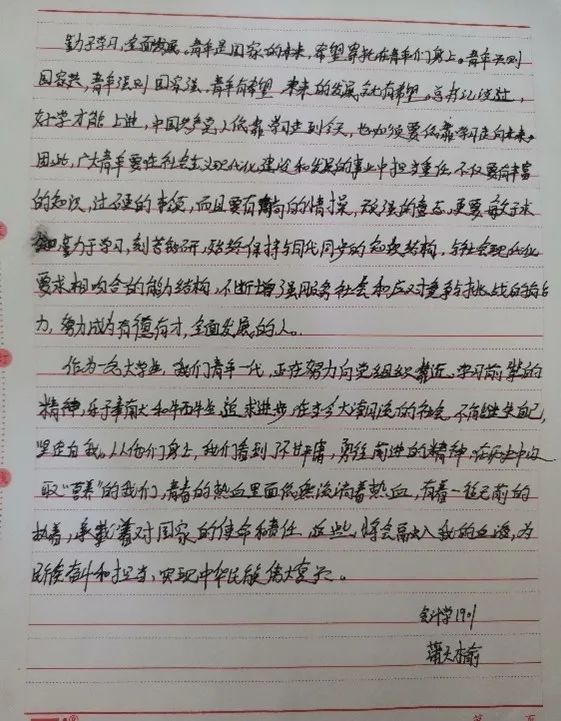 勤于学习，全面发展。青年是国家的未来，希望寄托在青年们身上。青年兴则
国家兴，青年强则国家强，青年有希望，未来的发展就有希望。总书记说过，
好学才能上进，中国共产党人依靠学习走到今天，也必须要依靠学习走向未来。
因此，广大青年要在社会主义现代化建设和发展的事业中担当重任，不仅要有丰富
的知识，过硬的本领，而且要有高尚的情操，顽强的意志，更要敏于求
知勤于学习，刻苦钻研，始终保持与时代同步的知识结构，与社会现代化
要求相吻合的能力结构，不断增强服务社会和应对竞争与挑战的能
力，努力成为有德有才，全面发展的人。
作为一名大学生，我们青年一代，正在努力向党组织靠近。学习前辈的
精神，乐于奉献和牺牲，追求进步，在大浪的社会，不能迷失自己，
坚定自我。从他们身上，我们看到了不甘平庸，勇往前进的精神。在历史中汲
取“营养”的我们，青春的热血里面依然流淌着热血，有着一往无前的
执着，承载着对国家的使命和责任，这些，将会融入我的血液，为
民族奋斗和担当，实现中华民族伟大复兴。
会计学1901
蒲